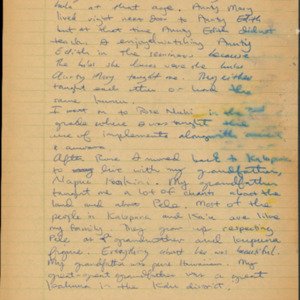 hula at that age. Aunty Mary
lived right next door to Aunty Edith
but at that time Aunty Edith did not
teach. I enjoy watching Aunty
Edith in the because
the hulas she knew were the hulas
Aunty Mary taught me. They either
taught each other or had the
same kumu.
I went on to Rose in the
grades where I was taught the
use of implements along with
&
After Rose I moved back to Kalapana
to live with my grandfather,
My grandfather
taught me a lot of chants about the
land and about Pele. Most of the
people in Kalapana and Ka'u are like
my family. They grow up respecting
Pele as a grandmother and
figure. Everything about her was beautiful.
My grandfather was pure Hawaiian. My
great great grandfather was a great
kahuna in the Kau district.